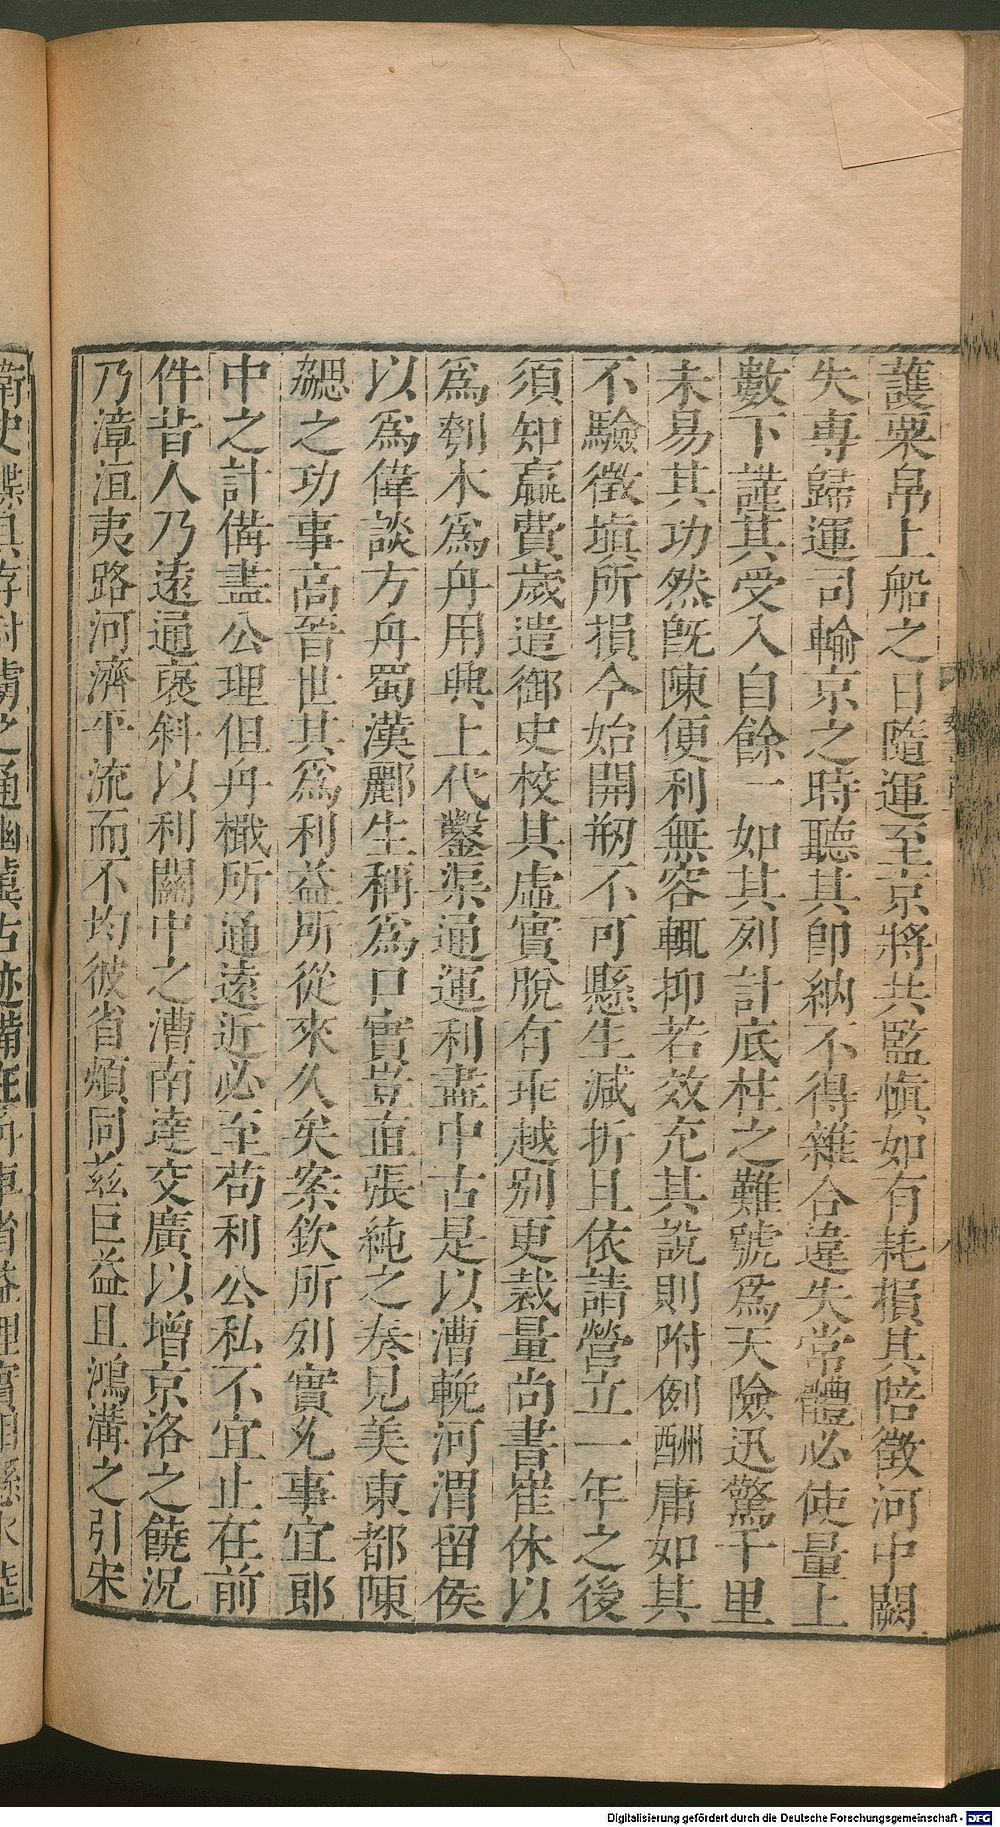 護粟帛上船之日隨運至京將共監慎如有耗損其陪徵河中闕
失專歸運司輸京之時聽其卽納不得雜合違失常體必使量上
數下謹其受入自餘一如其列計底柱之難號爲天險迅驚千里
未易其功然旣陳便利無容輒抑若效充其說則附例酬庸如其
不驗徵塡所損今始開剏不可懸生減折且依請營立一年之後
須知贏費歲遣御史校其虛實脫有乖越別更裁量尚書崔休以
爲刳木爲舟用興上代鑿渠通運利盡中古是以漕輓河渭留侯
以爲偉談方舟蜀漢酈生稱爲口實豈直張純之奏見美東都陳
勰之功事高晉世其爲利益所從來久矣案欽所列實允事宜郎
中之計備盡公理但舟檝所通遠近必至苟利公私不宜止在前
件昔人乃遠通褒斜以利關中之漕南達交廣以增京洛之饒況
乃漳洹夷路河濟平流而不均彼省煩同茲巨益且鴻溝之引宋
Digitalisierung gefördert durch die Deutsche Forschungsgemeinschaft - DFG